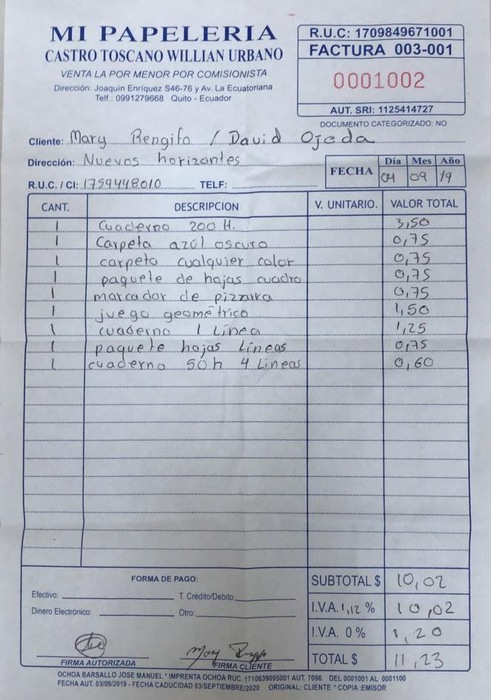 MI PAPELERIA
CASTRO TOSCANO WILLIAN URBANO
VENTA LA POR MENOR POR COMISIONISTA
Dirección: Joaquin Enríquez S46-76 y Av. La Ecuatoriana
Telf.: 0991279668 Quito - Ecuador
R.U.C: 1709849671001
FACTURA 003-001
0001002
AUT. SRI: 1125414727
DOCUMENTO CATEGORIZADO: NO
Cliente: Mary Rengifo / David Ojeda
Dirección: Nuevos horizontes
R.U.C / CI: 1759448010 TELF:
FECHA Día Mes Año
04 09 19
CANT. DESCRIPCION V. UNITARIO. VALOR TOTAL
1 Cuaderno 200 H. 3,50
1 Carpeta azul oscuro 0,75
1 carpeta cualquier color 0,75
1 paquete de hojas cuadro 0,75
1 marcador de pizarra 0,75
1 juego geométrico 1,50
1 cuaderno 1 Linea 1,25
1 paquete hojas Lineas 0,75
1 cuaderno 50h 4 Lineas 0,60
FORMA DE PAGO:
Efectivo: T. Crédito/Debito:
Dinero Electrónico: Otro:
FIRMA AUTORIZADA FIRMA CLIENTE
SUBTOTAL $ 10,02
I.V.A. 1,12 % 10,02
I.V.A. 0% 1,20
TOTAL $ 11,23
OCHOA BARSALLO JOSE MANUEL * IMPRENTA OCHOA RUC. 1710639095001 AUT. 7096 DEL 0001001 AL 0001100
FECHA AUT. 03/09/2019 - FECHA CADUCIDAD 03/SEPTIEMBRE/2020 ORIGINAL: CLIENTE * COPIA: EMISOR